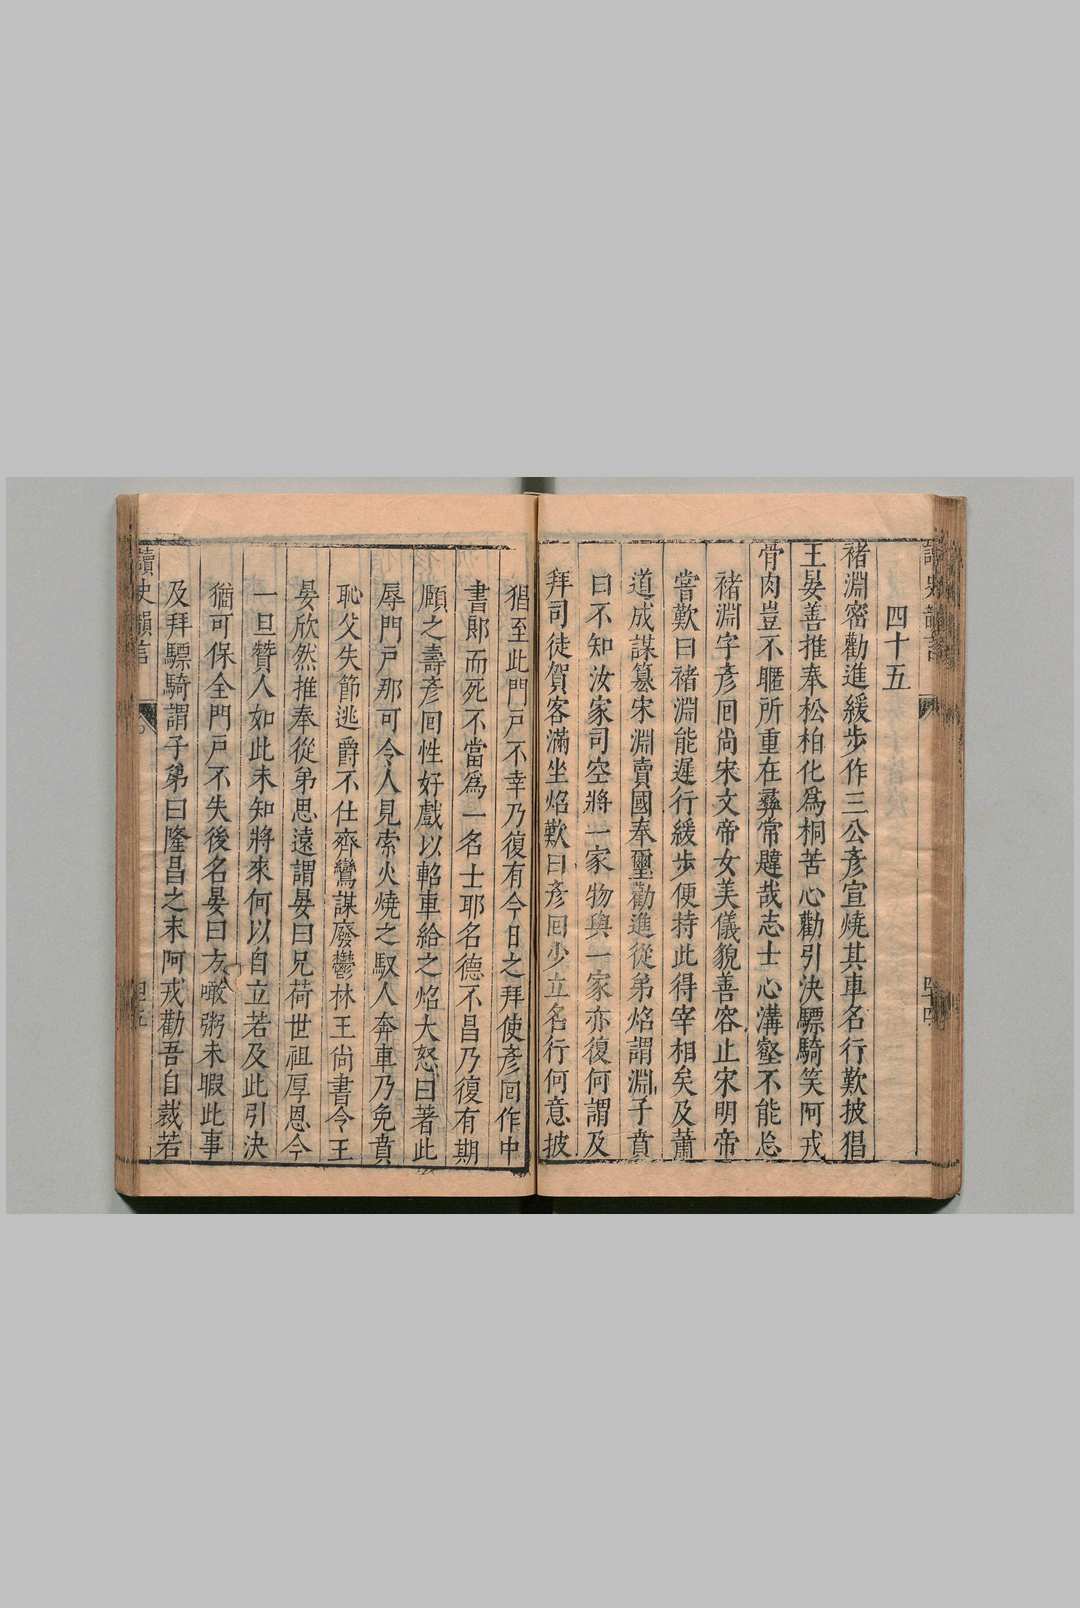 四十五
褚淵密勸進緩步作三公彥宣燒其車名行歎披猖
王晏善推奉松柏化爲桐苦心勸引決驃騎笑阿戎
骨肉豈不暱所重在彝常韙哉志士心溝壑不能忘
褚淵字彥回尚宋文帝女美儀貌善容止宋明帝
嘗歎曰褚淵能遲行緩步便持此得宰相矣及蕭
道成謀簒宋淵賣國奉璽勸進從弟炤謂淵子賁
曰不知汝家司空將一家物與一家亦復何謂及
拜司徒賀客滿坐炤歎曰彥回少立名行何意披
猖至此門戶不幸乃復有今日之拜使彥回作中
書郞而死不當爲一名士耶名德不昌乃復有期
頤之壽彥回性好戲以軺車給之炤大怒曰著此
辱門戶那可令人見索火燒之馭人奔車乃免賁
恥父失節逃爵不仕齊鸞謀廢鬱林王尚書令王
晏欣然推奉從弟思遠謂晏曰兄荷世祖厚恩今
一旦贊人如此未知將來何以自立若及此引決
猶可保全門戶不失後名晏曰方噉粥未暇此事
及拜驃騎謂子弟曰隆昌之末阿戎勸吾自裁若
讀史韻言
四五